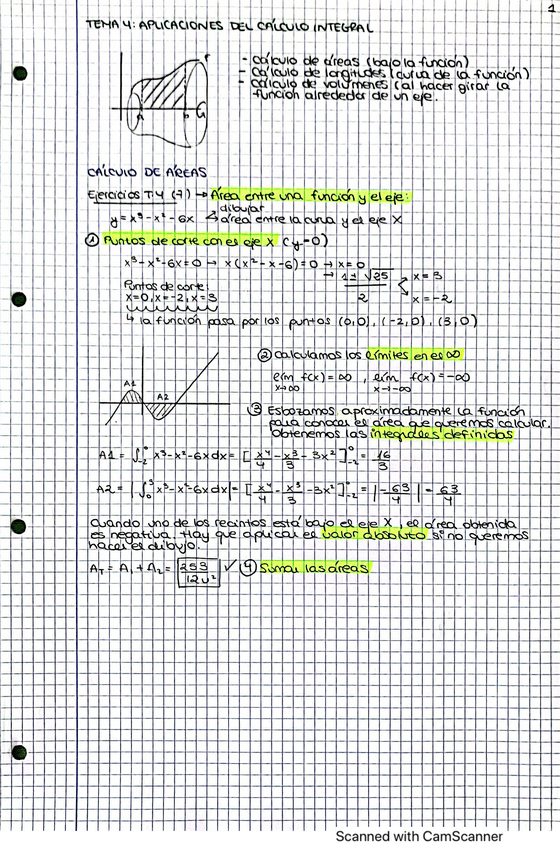 1
TEMA 4: APLICACIONES DEL CÁLCULO INTEGRAL
- Cálculo de áreas (bajo la función)
- Cálculo de longitudes (curva de la función)
- Cálculo de volúmenes (al hacer girar la
función alrededor de un eje.
A b
CÁLCULO DE ÁREAS
Ejercicios T.4 (7) → Área entre una función y el eje:
dibujar
y = x³ - x² - 6x área entre la curva y el eje X
① Puntos de corte con el eje X (y=0)
x³ - x² - 6x = 0 → x (x² - x - 6) = 0 → x = 0
→ 1 ± √25 / 2 x = 3
x = -2
Puntos de corte:
x=0, x=-2, x=3
↳ la función pasa por los puntos (0,0), (-2,0), (3,0)
② Calculamos los límites en el ∞
lím f(x) = ∞ , lím f(x) = -∞
x→∞ x→-∞
A1 A2
③ Esbozamos aproximadamente la función
para conocer el área que queremos calcular.
Obtenemos las integrales definidas
A1 = ∫₋₂⁰ x³ - x² - 6x dx = [x⁴/4 - x³/3 - 3x²]₋₂⁰ = 16/3
A2 = |∫₀³ x³ - x² - 6x dx| = [x⁴/4 - x³/3 - 3x²]₋₂⁰ = |-63/4| = 63/4
Cuando uno de los recintos está bajo el eje X, el área obtenida
es negativa. Hay que aplicar el valor absoluto si no queremos
hacer el dibujo.
A_T = A₁ + A₂ = 253/12 u² ✓ ④ Sumar las áreas
Scanned with CamScanner